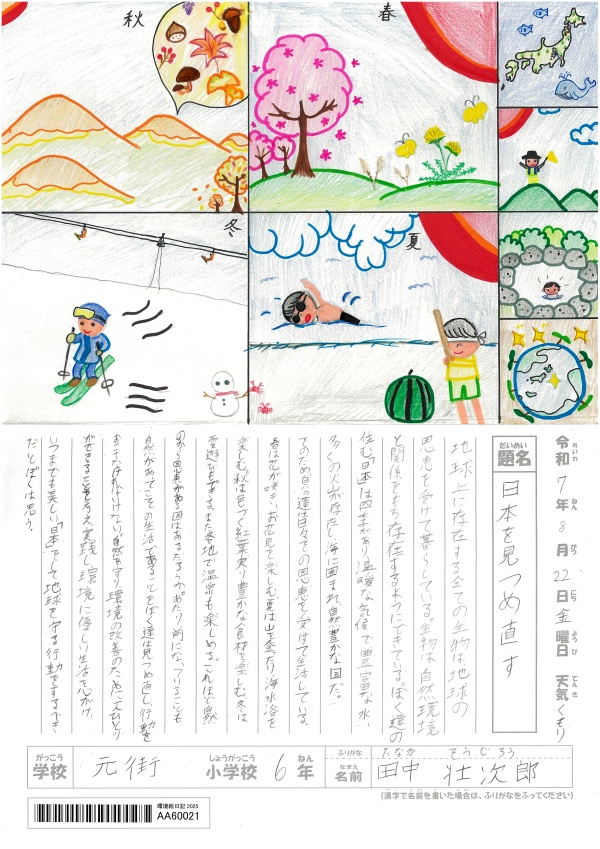 秋
春
冬
夏
令和7年8月22日金曜日 天気くもり
れいわ ねん がつ にち ようび てんき
だいめい
題名 日本を見つめ直す
地球上に存在する全ての生物は地球の
恩恵を受けて暮らしている。生物は自然環境
と関係をもち存在するようにできている。ぼく達の
住む「日本」は四季があり温暖な気候で豊富な水、
多くの人が存在し海に囲まれ自然豊かな国だ。
そのため自分達は日々その恩恵を受けて生活している。
春は花が咲きお花見を楽しむ。夏は山を登ったり海水浴を
楽しむ。秋は色づく紅葉、実り豊かな食材を楽しむ。冬は
雪遊びもできる。また各地で温泉も楽しめる。これほど自然
恩恵がある国はあるだろうか。あたり前になっていることも
自然があってこその生活であることをぼく達は見つめ直し、行動を
おこさなければいけない。自然を守り環境の改善のために一人ひとり
ができることを考え実践し環境に優しい生活を心がけ、
いつまでも美しい「日本」そして地球を守る行動をするべき
だとぼくは思う。
がっこう しょうがっこう ねん ふりがな たなか そうじろう
学校 元街 小学校 6年 なまえ 名前 田中 壮次郎
(漢字で名前を書いた場合は、ふりがなをふってください)
環境絵日記 2025
AA60021